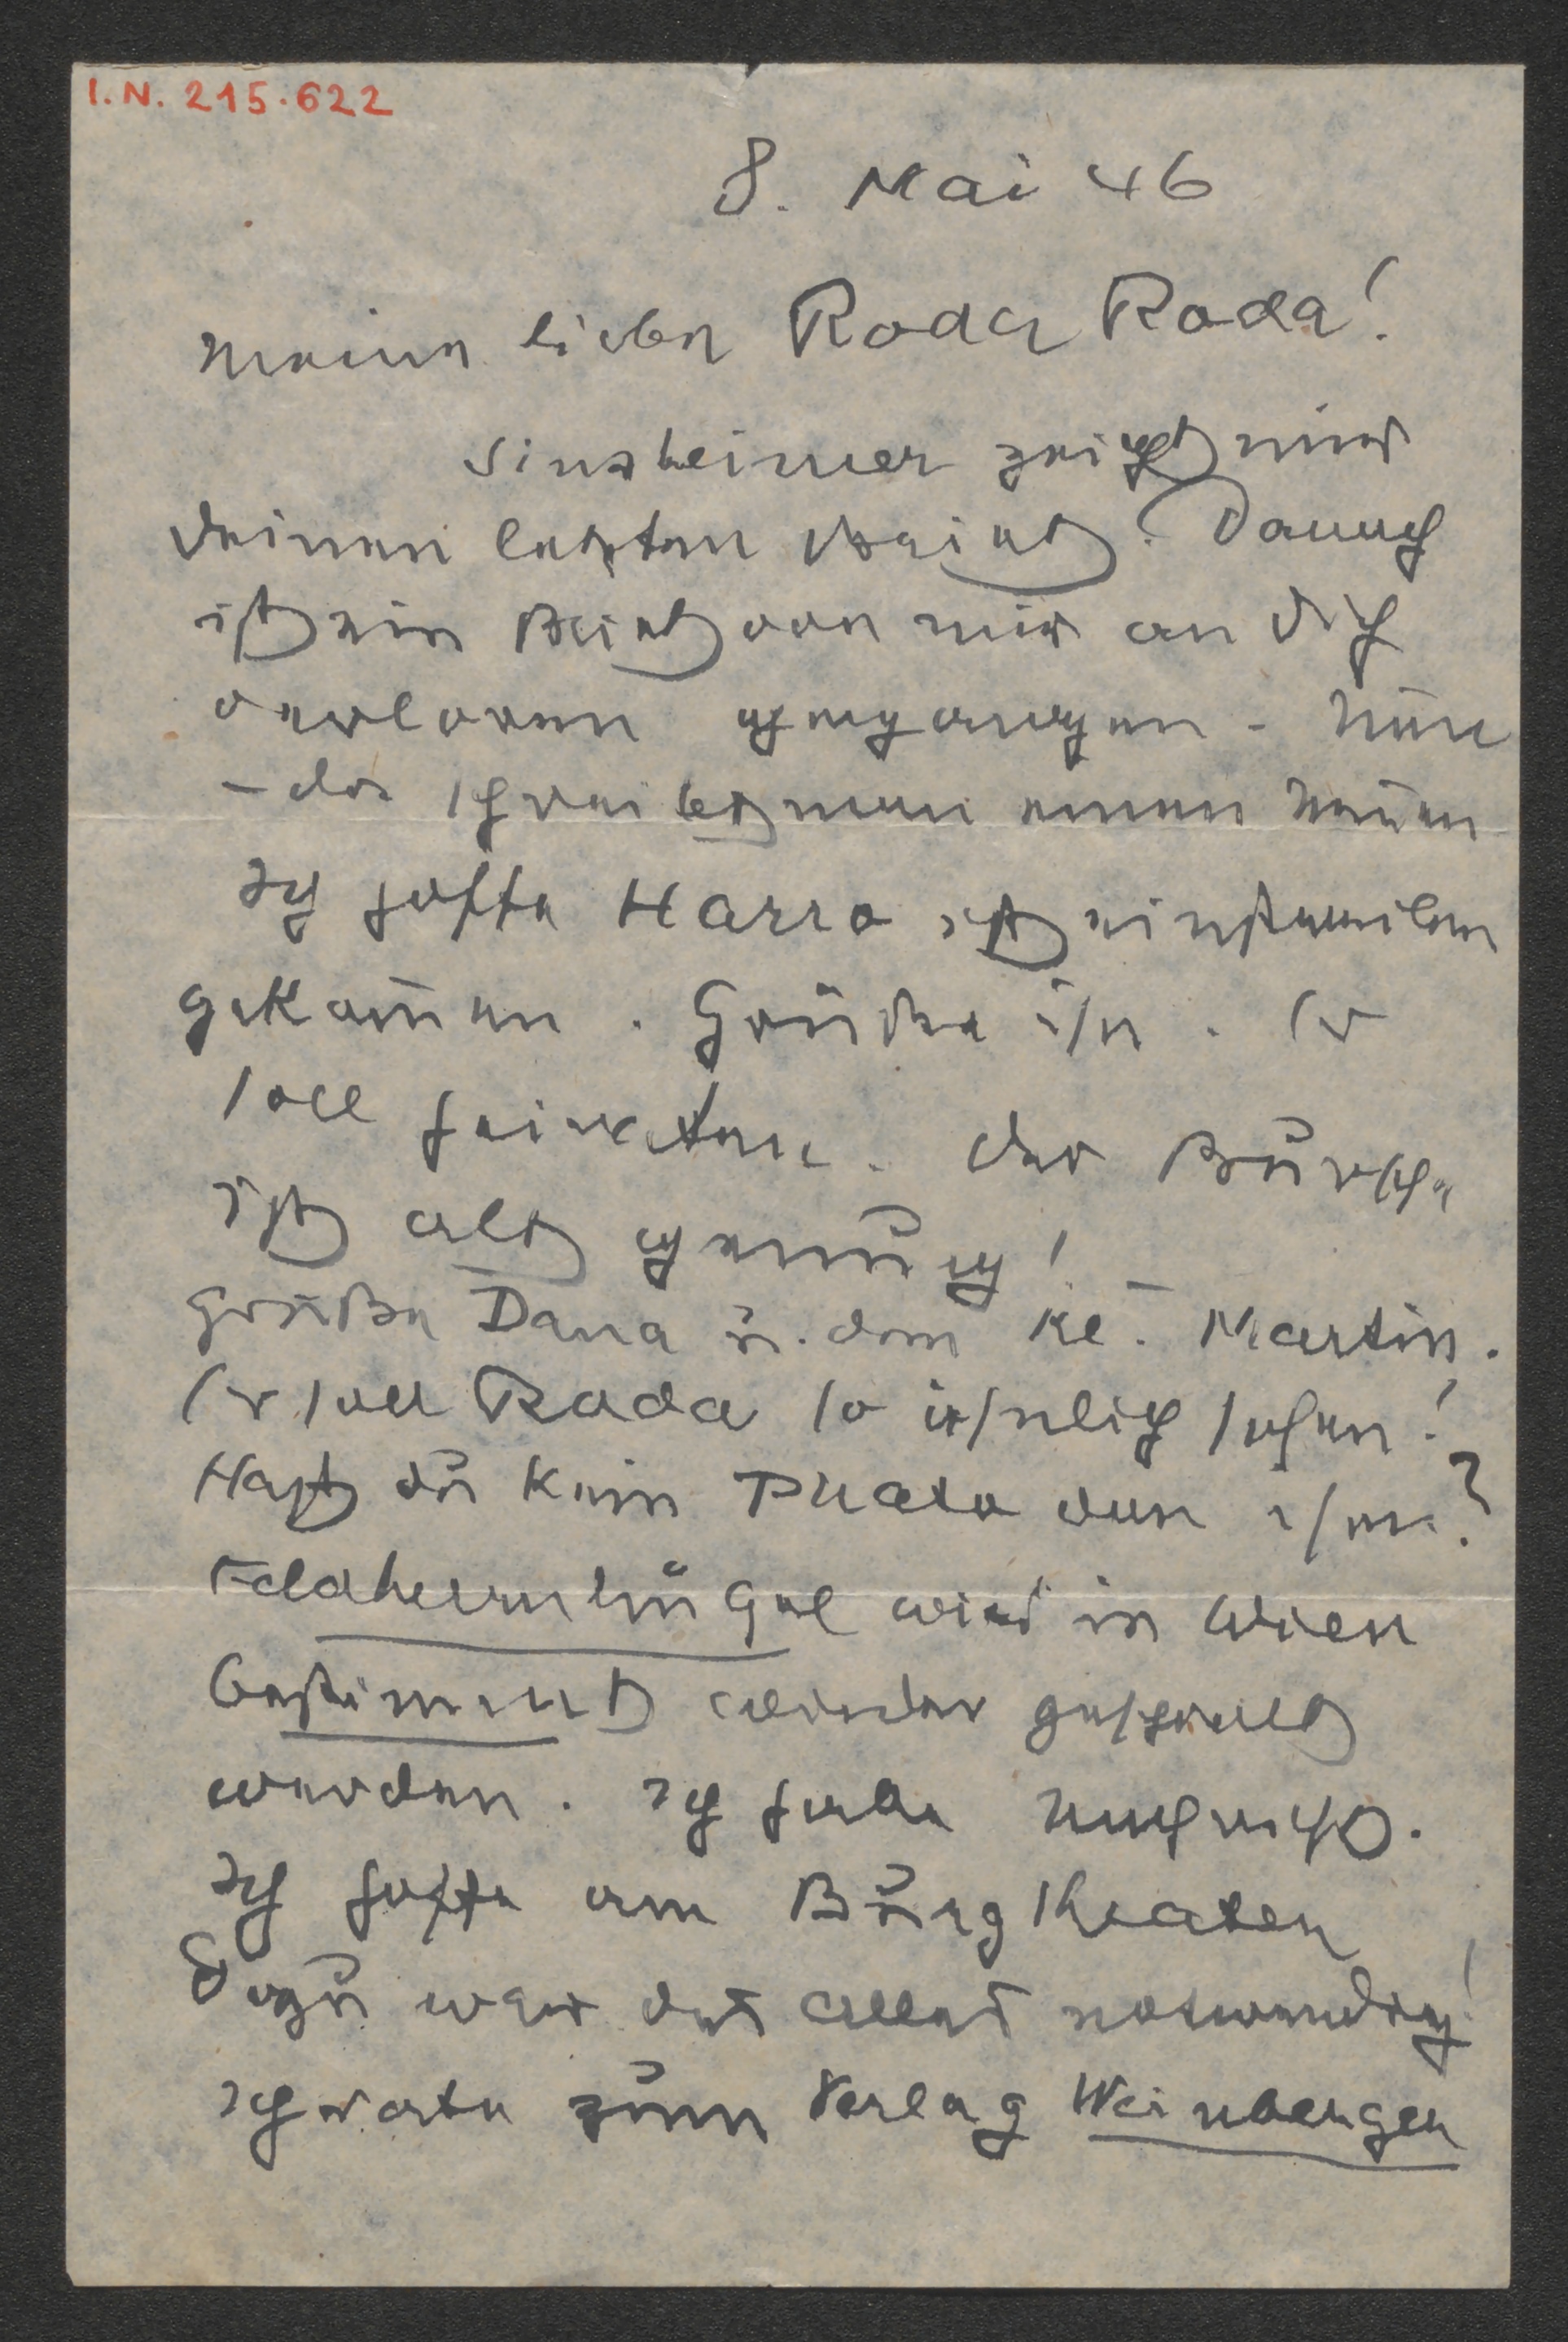 I.N. 215.622
8. Mai 46
Meine liebe Roda Roda!
Sinsheimer zeigt mir
Deinen letzten Brief. Danach
ist ein Brief von mir an Dich
verloren gegangen - Nun
- da schreibt man einen neuen
Ich hoffe Harro ist einstweilen
gekom̅en. Grüße ihn. Er
soll heiraten. Der Bursche
ist alt genug!
Grüße Dana u. den kl. Martin.
Er soll Roda so ähnlich sehen!
Hast du kein Photo von ihm?
Feldherrnhügel wird in Wien
bestimmt wieder gespielt
werden. Ich habe Nachricht.
Ich hoffe am Burgtheater
Dazu war das alles notwendig!
Ich rate zum Verlag Weinberger